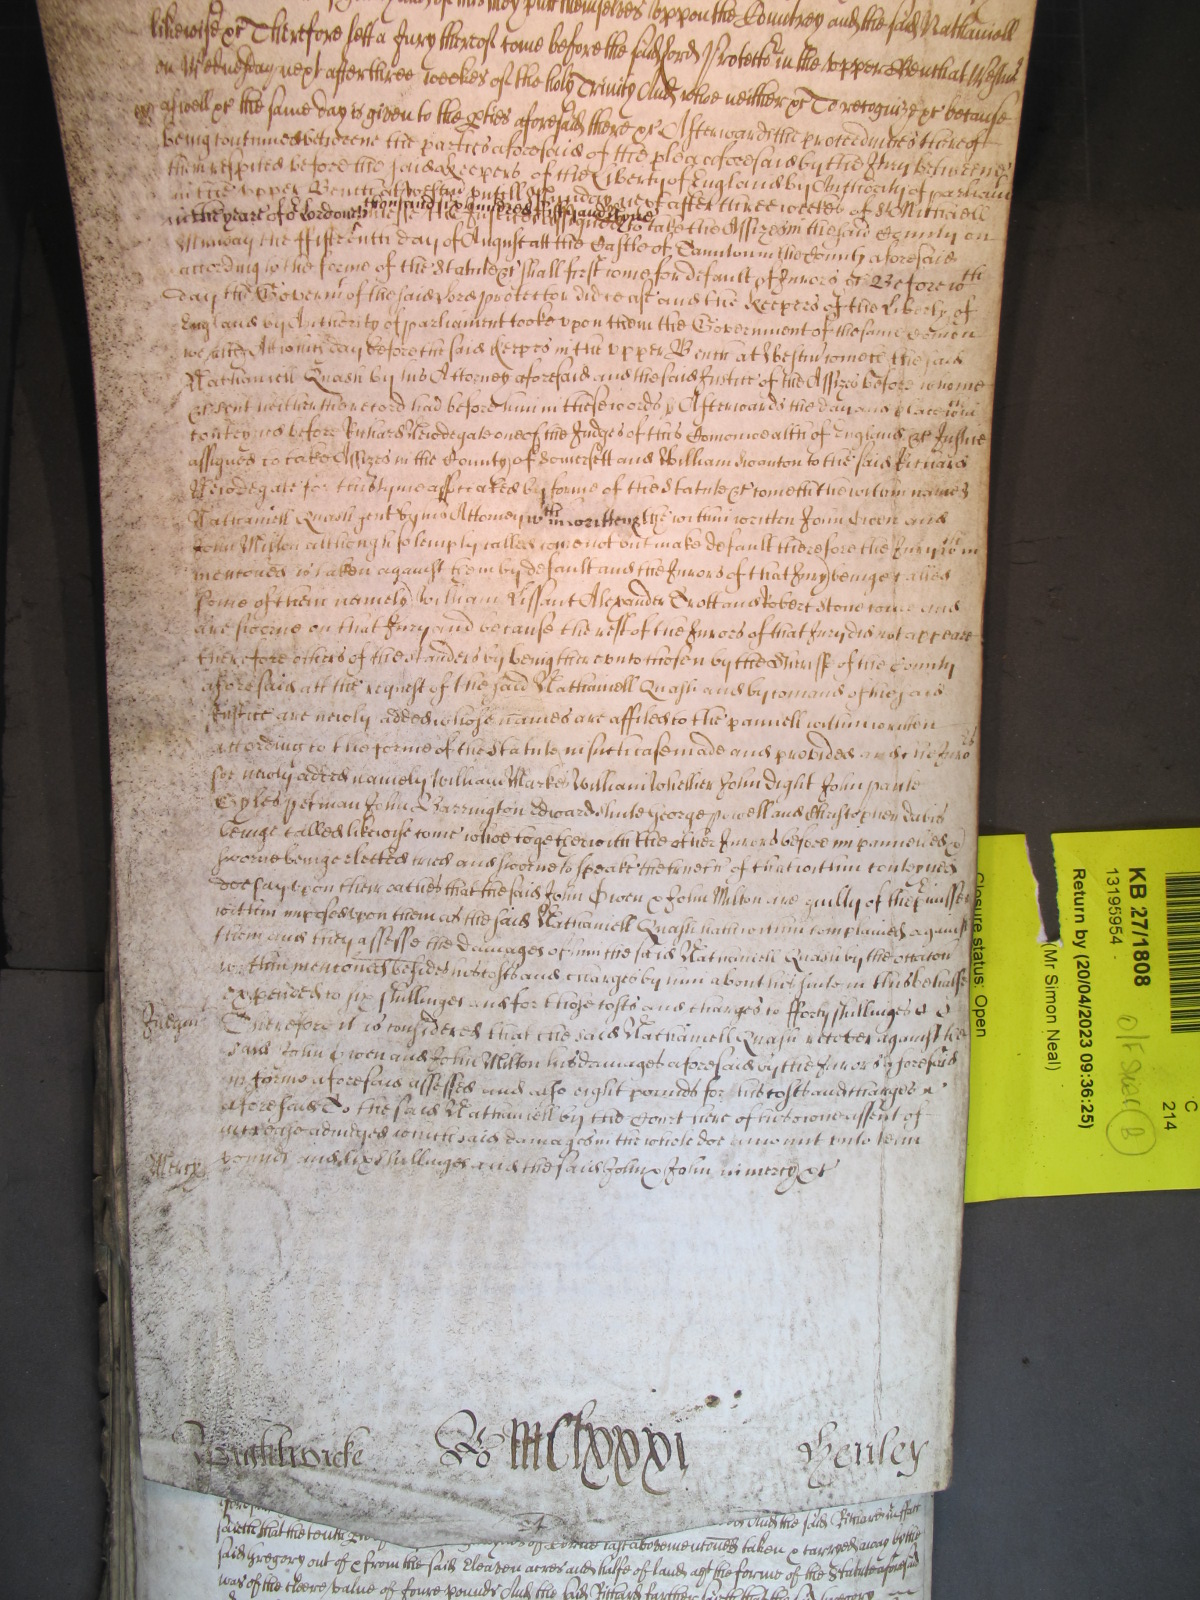 put themselves uppon the Countrey and the said Nathaniell
likewise &c Therefore lett a Jury thereof come before the said Lord Protector in the upper Bench at Westmr
on Wednesday next after three weekes of the holy Trinity And who neither &c To recognize &c because
aswell &c the same day is given to the parties aforesaid there &c Afterwards the proces thereof
being continued betweene the parties aforesaid of the plea aforesaid by the Jury betweene
them respited before the said Keepers of the Liberty of England by Authority of parliamt
in the upper Bench at Westmr untill next after three weekes of St Michaell
in the yeare of or Lord one thousand six hundred fifty and nyne to take the Assizes in the said County on
Munday the fifteenth day of August att the Castle of Taunton in the County aforesaid
according to the forme of the Statute &c shall first come for default of Jurors &c Before wch
day the Governmt of the said Lord protector did cease and the Keepers of the Liberty of
England by Authority of parliament tooke upon them the Government of the same
day before the said Keepers in the upper Bench at Westmr cometh the said
Nathaniell Quash by his Attorney aforesaid and the said Justice of the Assizes before whome
&c sent hither the record had before him in these words Afterwards the day and place wthin
conteyned before Richard Newdegate one of the Judges of this Comonwealth of England &c Justice
assigned to take Assizes in the County of Somersett and William Swanton to the said Richard
Newdegate for this tyme associated by forme of the Statute &c cometh the within named
Nathaniell Quash gent by his Attorney wthin written & the within written John Owen and
John Milton although solemply called come not but make default therefore the Jury wthin
menconed is taken against them by default and the Jurors of that Jury being called
some of them namely William Lissant Alexander Trott and Robert Stone come and
are sworne on that Jury and because the rest of the Jurors of that Jury did not appeare
therefore others of the standers by being thereunto chosen by the Sheriffe of the County
aforesaid att the request of the said Nathaniell Quash and by comand of the said
Justice are newly added whose names are affiled to the pannell within written
according to the forme of the Statute in such case made and provided and the Jurors
soe newly added namely William Markes William Whellier John Dight John
Gyles petman John Barrington Edward Shute George powell and Christopher Davis
being called likewise come whoe together with the other Jurors before impannelled &
sworne being elected tried and sworne to speake the trueth of the within conteyned
doe say upon their oathes that the said John Owen & John Milton are guilty of the premisses
within imposed upon them as the said Nathaniell Quash hath within complained against
them and they assesse the damages of him the said Nathaniell Quash by the occacon
within menconed besides his costs and charges by him about his suite in this behalfe
expended to six shillinges and for those costs and charges to fforty shillinges
Judgmt Therefore it is considered that the said Nathaniell Quash recover against the
said John Owen and John Milton his damages aforesaid by the Jurors aforesaid
in forme aforesaid assessed and also eight pounds for his costs and charges
aforesaid To the said Nathaniell by the Court here of his owne assent of
increase adiudged which said damages in the whole doe amount unto tenn
pounds and six shillinges and the said John & John in mercy &c
Mercy
Wightwicke Ro MClxxxi Henley
saieth that the tenth last abovemenconed taken & carryed away by the
said Gregory out of & from the said Eleaven acres and halfe of land agt the forme of the Statute aforesaid
was of the cleere value of foure pounds And the said Richard further saieth that the said Gregory
C
214
KB 27/1808
13195954
Return by (20/04/2023 09:36:25)
(Mr Simon Neal)
Closure status: Open